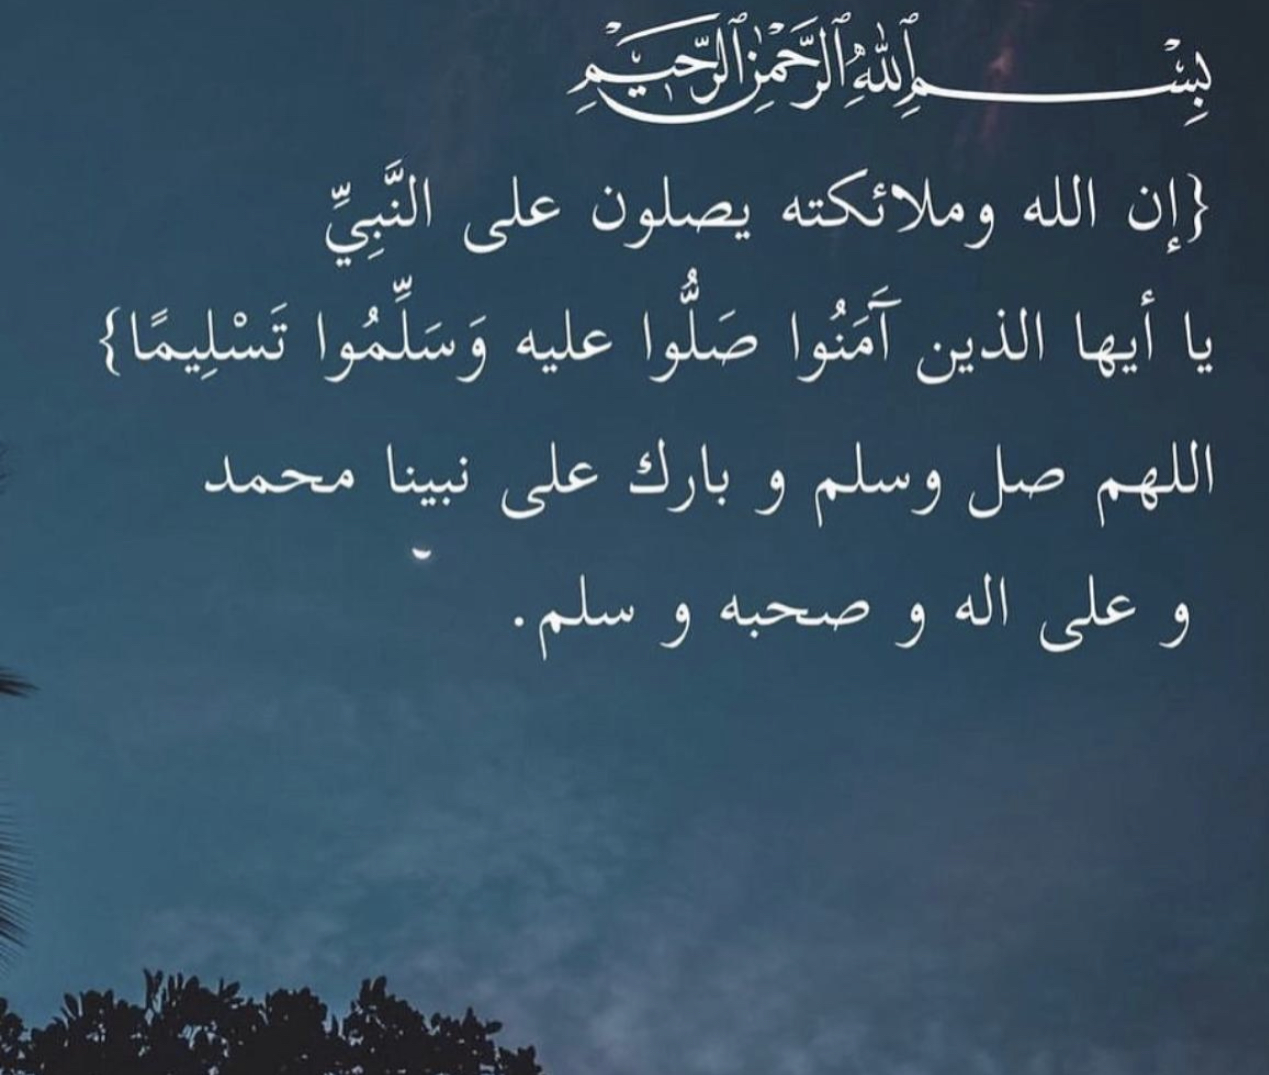 بِسْمِ ٱللَّهِ ٱلرَّحْمَٰنِ ٱلرَّحِيمِ
{إن الله وملائكته يصلون على النَّبِيِّ
يا أيها الذين آمَنُوا صَلُّوا عليه وَسَلِّمُوا تَسْلِيمًا}
اللهم صل وسلم و بارك على نبينا محمد
و على اله و صحبه و سلم.